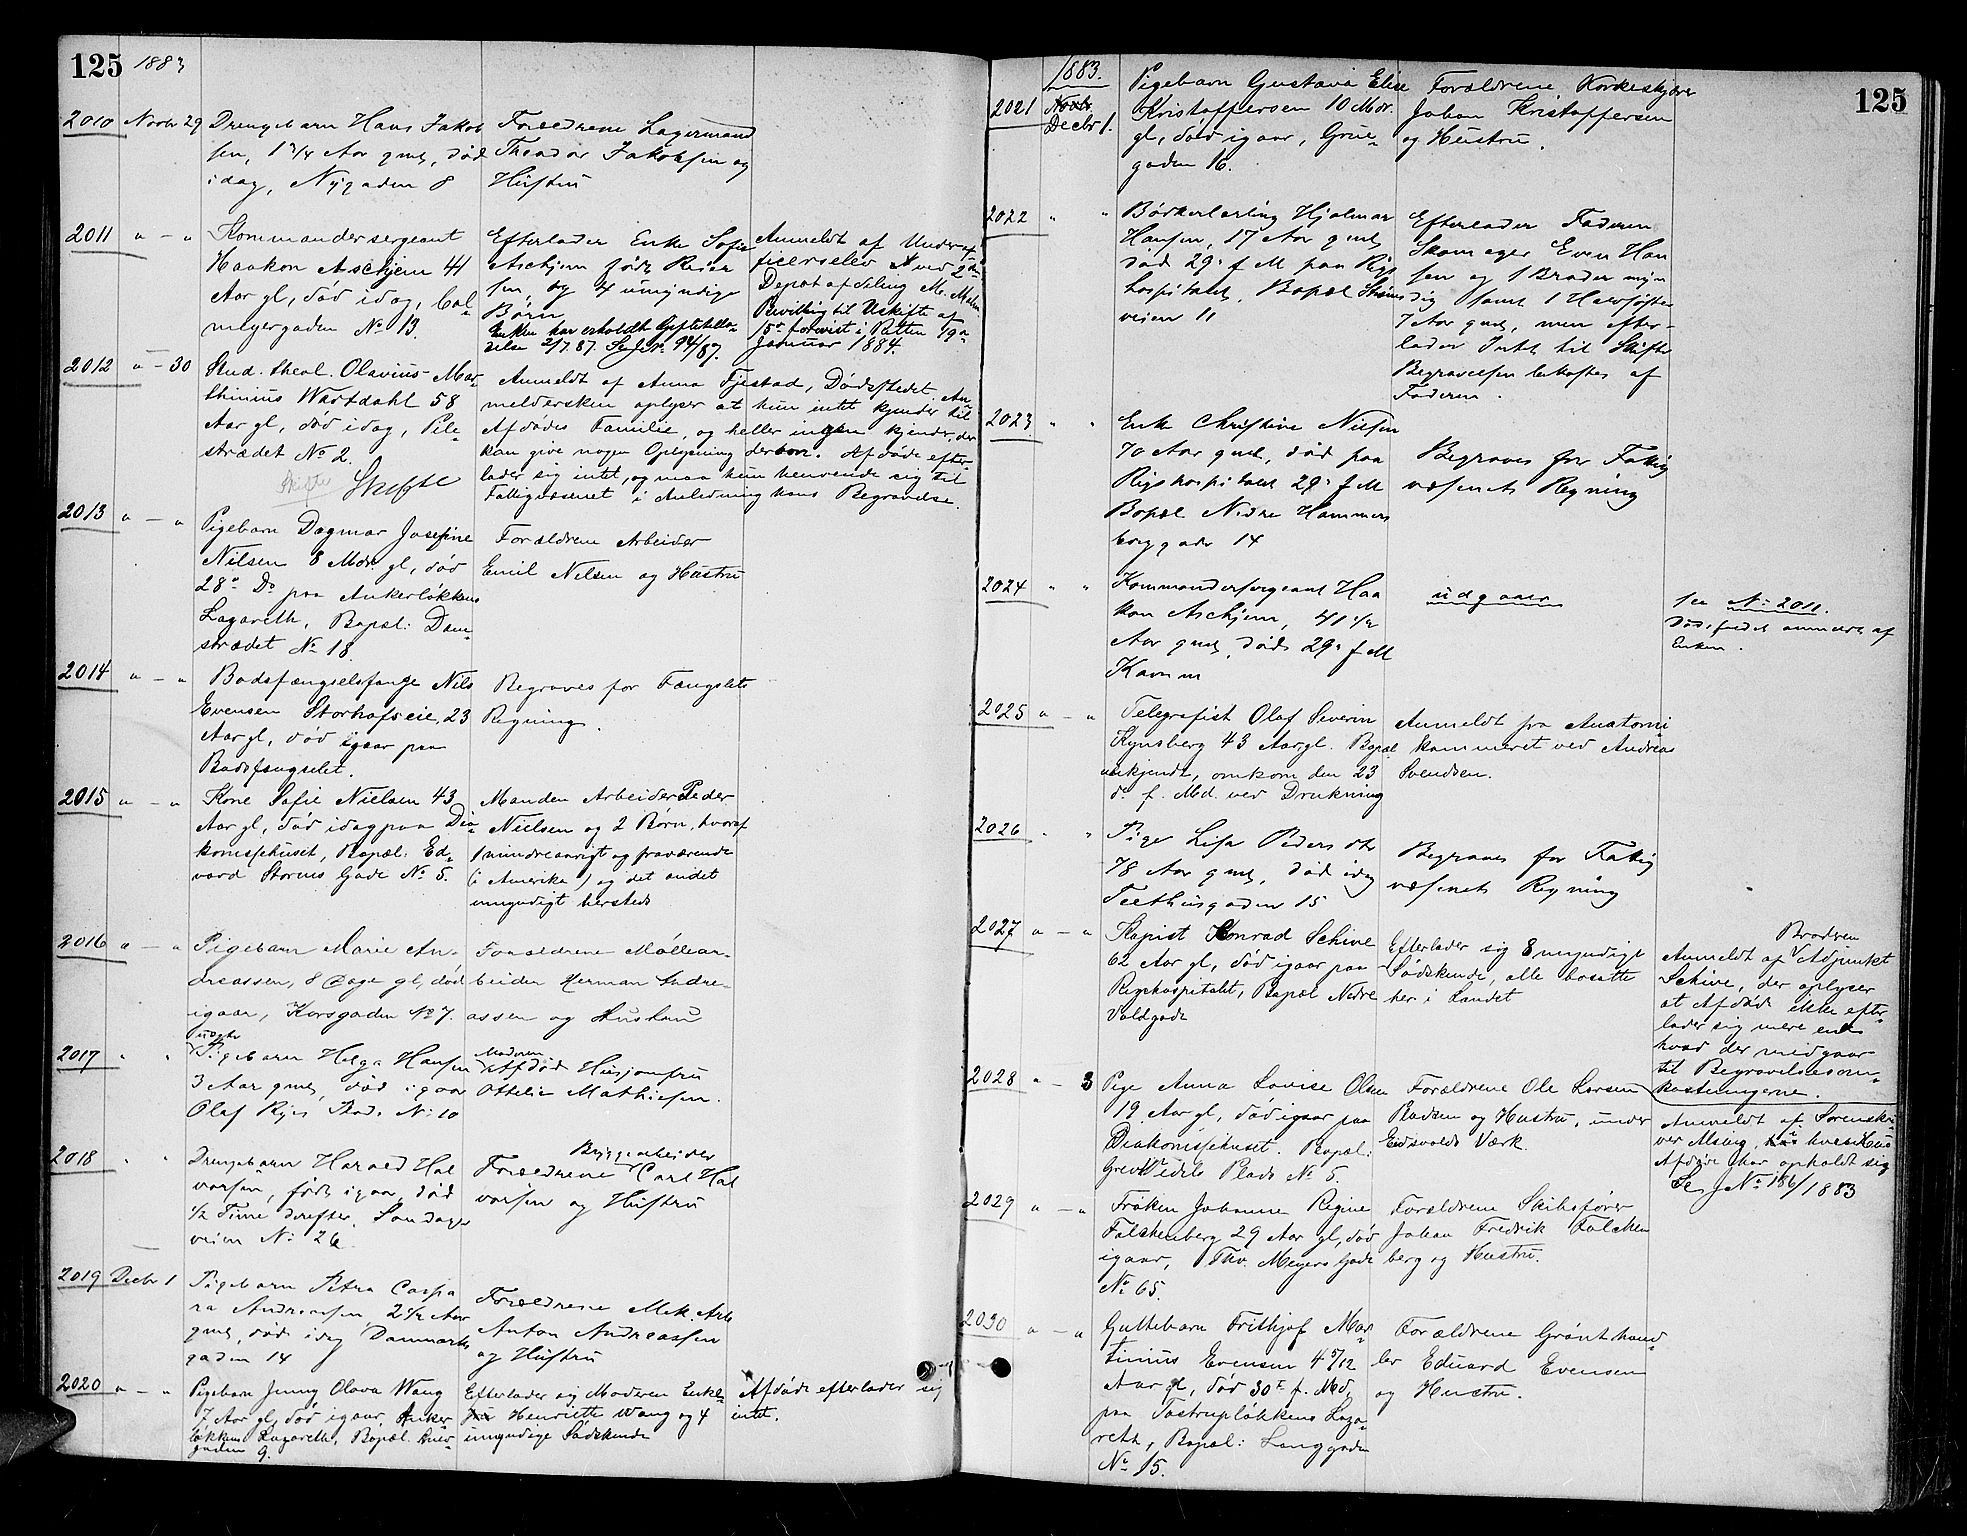 125 1883
2010 Novbr 29 Drengebarn Hans Jakob
sen, 1 3/4 Aar gml, død
idag, Nygaden 8
Forældrene Lagermand
Theodor Jakobsen og
Hustru
2011 " — " Kommandersergeant
Haakon Aschjem 41
Aar gl, død idag, Col=
meyergaden No 13.
Efterlader Enke Sofie
Aschjem født
sen og 4 umyndige
Børn
Enken har erholdt
delse 2/7 87.
Anmeldt af Underof=
ficerselev ved 2den
Depotafdeling M.
Bevilling til Uskifte af
fremvist i Retten 19a
Januar 1884.
2012 " — 30 Stud. theol. Olavius Mar=
thinius Wartdahl 58
Aar gl, død idag, Pile=
strædet No 2.
Skifte Skifte
Anmeldt af Anna Fjestad, Dødsstedet. An=
meldersken oplyser at hun intet kjender til
Afdødes Familie, og heller ingen kjender, der
kan give nogen Oplysning derom. Afdøde efter=
lader sig intet, og maa hun henvende sig til
Fattigvæsenet i Anledning hans Begravelse.
2013 " — " Pigebarn Dagmar Josefine
Nilsen 8 Mdr. gl, død
28de Do paa Ankerløkkens
Lazareth, Bopæl: Dam=
strædet No 18
Forældrene Arbeider
Emil Nilsen og Hustru
2014 " — " Bodsfængselsfange Nils
Evensen Storhofseie, 23
Aar gl, død igaar paa
Bodsfængselet.
Begraves for Fængslets
Regning.
2015 " — " Kone Sofie Nielsen 43
Aar gl, død idag paa Dia=
konissehuset, Bopæl: Ed=
vard Storms Gade No 5.
Manden Arbeider Peder
Nielsen og 2 Børn, hvoraf
1 mindreaarigt og fraværende
(i Amerika) og det andet
umyndigt hersteds
2016 " — " Pigebarn Marie An=
dreassen, 8 Dage gl, død
igaar, Korsgaden No 7.
Forældrene Møllear=
beider Herman Andre=
assen og Hustru
2017 " " uægte
Pigebarn Helga Hansen
3 Aar gml, død igaar
Olaf Ryes Plads No 10
Moderen
Afdød Husjomfru
Ottilie Mathisen.
2018 " " Drengebarn Harald Hal
vorsen, født igaar, død
1/2 Time derefter. Sandager
veien No 26
Bryggearbeider
Forældrene Carl Hal
vorsen og Hustru
2019 Decbr 1 Pigebarn Petra Caspa
ra Andreassen, 2 1/2 Aar
gml, død idag Danmarks
gaden 14
Forældrene Mek. Arb
Anton Andreassen
og Hustru
2020 " — " Pigebarn Jenny Olava Wang
7 Aar gl, død igaar, Anker
løkkens Lazareth, Bopæl.
gaden 9.
Efterlader sig Moderen Enke=
Henriette Wang og 4
umyndige Søskende
Afdøde efterlader sig
intet.
125
1883.
2021 Novbr
Decbr 1. Pigebarn Gustava Elise
Kristoffersen 10 Mdr.
gl, død igaar, Grue=
gaden 16.
Forældrene Korkeskjærer
Johan Kristoffersen
og Hustru.
2022 " " Bødkerlærling Hjalmar
Hansen, 17 Aar gml,
død 29de f M paa Rigs
hospitalet. Bopæl Strøms
veien 11
Efterlader Faderen
Skomager Even Han
sen og 1 Broder myn
dig samt 1 Halvsøster
7 Aar gml, men efter=
lader Intet til Skifte
Begravelsen bekostes af
Faderen.
2023 " " Enke Christine Nilsen
70 Aar gml, død paa
Rigshospitalet 29de f M
Bopæl Nedre Hammers
borggade 14
Begraves for Fattig
væsenets Regning
2024 " " Kommandersergeant Haa
kon Aschjem, 41 1/2
Aar gml, død 29de f M
Kavum
udgaar
se No 2011.
Dødsfaldet anmeldt af
Enken.
2025 " — " Telegrafist Olaf Severin
Kynsberg 43 Aar gl. Bopæl
ukjendt, omkom den 23
d. f. Md. ved Drukning
Anmeldt fra Anatomi
kammeret ved Andreas
Svendsen.
2026 " " Pige Lisa Pedersdtr
78 Aar gml, død idag
Teethusgaden 15
Begraves for Fattig
væsenets Regning
2027 " — " Kopist Konrad Schive
62 Aar gl, død igaar paa
Rigshospitalet, Bopæl Nedre
Voldgade
Efterlader sig 8 myndige
Sødskende, alle bosatte
her i Landet
Broderen
Anmeldt af Adjunkt
Schive, der oplyser
at Afdøde ikke efter=
lader sig mere end
hvad der medgaar
til Begravelsesom=
kostningerne.
2028 " — 3 Pige Anna Lovise Olsen
19 Aar gl, død igaar paa
Diakonissehuset. Bopæl:
Grev Wedels Plads No 5.
Forældrene Ole Larsen
Badsen og Hustru, under
Eidsvolds Værk.
Anmeldt af Sorenskri
ver Alsing, i hvis Hus
Afdøde har opholdt sig
Se J No 186/1883
2029 " — " Frøken Johanne Regine
Falckenberg 29 Aar gl, død
igaar, Thv. Meyers Gade
No 65.
Forældrene Skibsfører
Johan Fredrik Falcken
berg og Hustru.
2030 " — " Guttebarn Frithjof Mar=
tinius Evensen 4 5/12
Aar gl, død 30te f. Md,
paa Tostrupløkkens Laza=
reth, Bopæl: Langgaden
No 15.
Forældrene Grønthand=
ler Eduard Evensen
og Hustru.